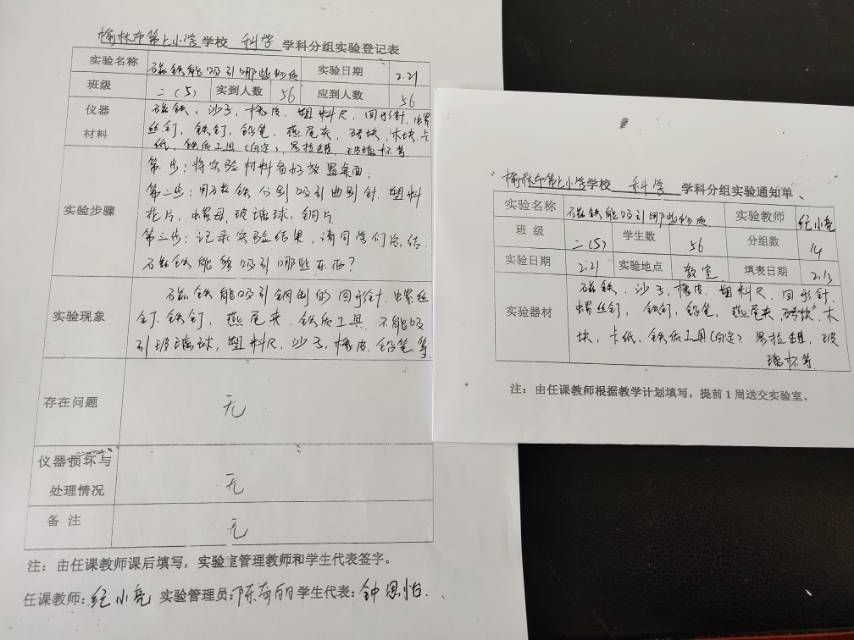 榆林市第七小学学校 科学 学科分组实验登记表
实验名称 磁铁能吸引哪些物体 实验日期 2.21
班级 二(5) 实到人数 56 应到人数 56
仪器材料 磁铁、沙子、橡皮、塑料尺、回形针、螺
丝钉、铁钉、铅笔、燕尾夹、砖块、木块、卡
纸、铁质工具(自定)、易拉罐、玻璃杯等
实验步骤 第一步：将实验材料备好放置桌面；
第二步：用磁铁分别吸引曲别针、塑料
片、螺母、玻璃球、铜片
第三步：记录实验结果，请同学们总结
磁铁能够吸引哪些东西？
实验现象 磁铁能吸引钢制的回形针、螺丝
钉、铁钉、燕尾夹、铁质工具、不能吸
引玻璃球，塑料尺、沙子、橡皮、铅笔等
存在问题 无
仪器损坏与处理情况 无
备注 无
注：由任课教师课后填写，实验室管理教师和学生代表签字。
任课教师：纪小亮 实验管理员：陈奇丽 学生代表：钟思怡
榆林市第七小学学校 科学 学科分组实验通知单
实验名称 磁铁能吸引哪些物体 实验教师 纪小亮
班级 二(5) 学生数 56 分组数 14
实验日期 2.21 实验地点 教室 填表日期 2.13
实验器材 磁铁、沙子、橡皮、塑料尺、回形针、
螺丝钉、铁钉、铅笔、燕尾夹、砖块、木
块、卡纸、铁质工具(自定) 易拉罐、玻
璃杯等
注：由任课教师根据教学计划填写，提前1周送交实验室。